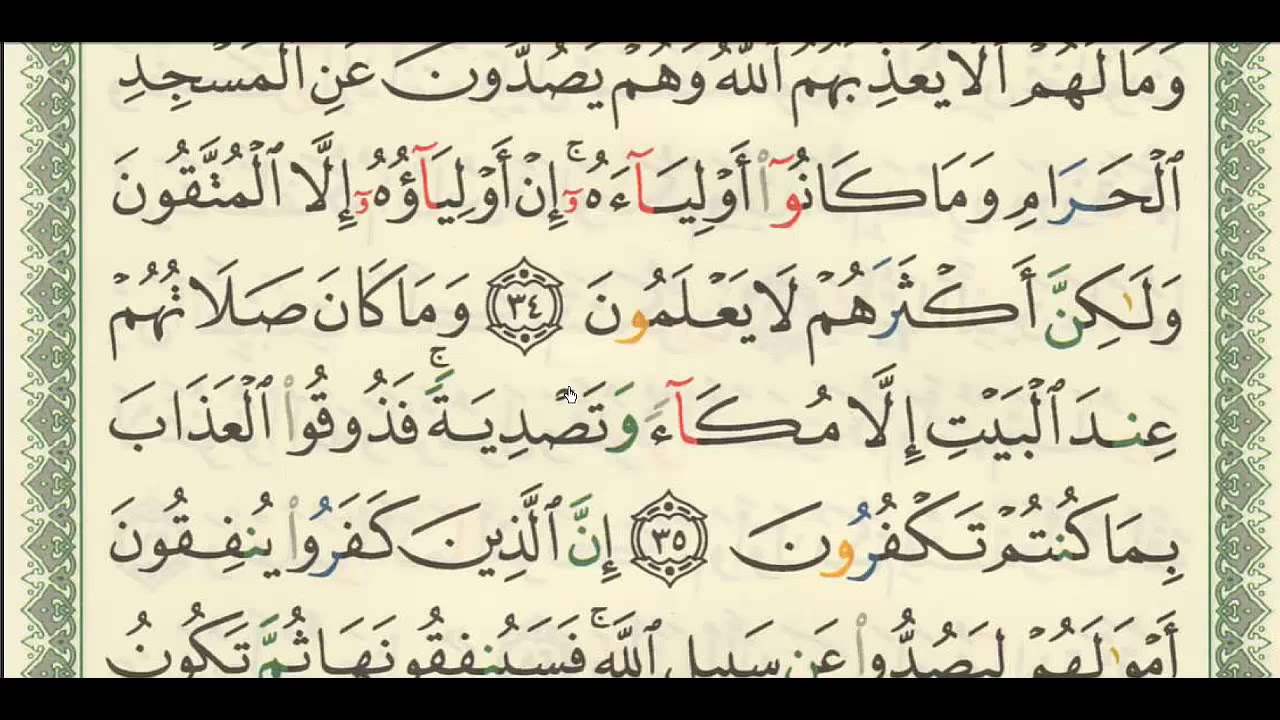 وَمَا لَهُمْ أَلَّا يُعَذِّبَهُمُ ٱللَّهُ وَهُمْ يَصُدُّونَ عَنِ ٱلْمَسْجِدِ
ٱلْحَرَامِ وَمَا كَانُوٓا۟ أَوْلِيَآءَهُۥٓ ۚ إِنْ أَوْلِيَآؤُهُۥٓ إِلَّا ٱلْمُتَّقُونَ
وَلَـٰكِنَّ أَكْثَرَهُمْ لَا يَعْلَمُونَ ٣٤ وَمَا كَانَ صَلَاتُهُمْ
عِندَ ٱلْبَيْتِ إِلَّا مُكَآءً وَتَصْدِيَةً ۚ فَذُوقُوا۟ ٱلْعَذَابَ
بِمَا كُنتُمْ تَكْفُرُونَ ٣٥ إِنَّ ٱلَّذِينَ كَفَرُوا۟ يُنفِقُونَ
أَمْوَٰلَهُمْ لِيَصُدُّوا۟ عَن سَبِيلِ ٱللَّهِ ۚ فَسَيُنفِقُونَهَا ثُمَّ تَكُونُ